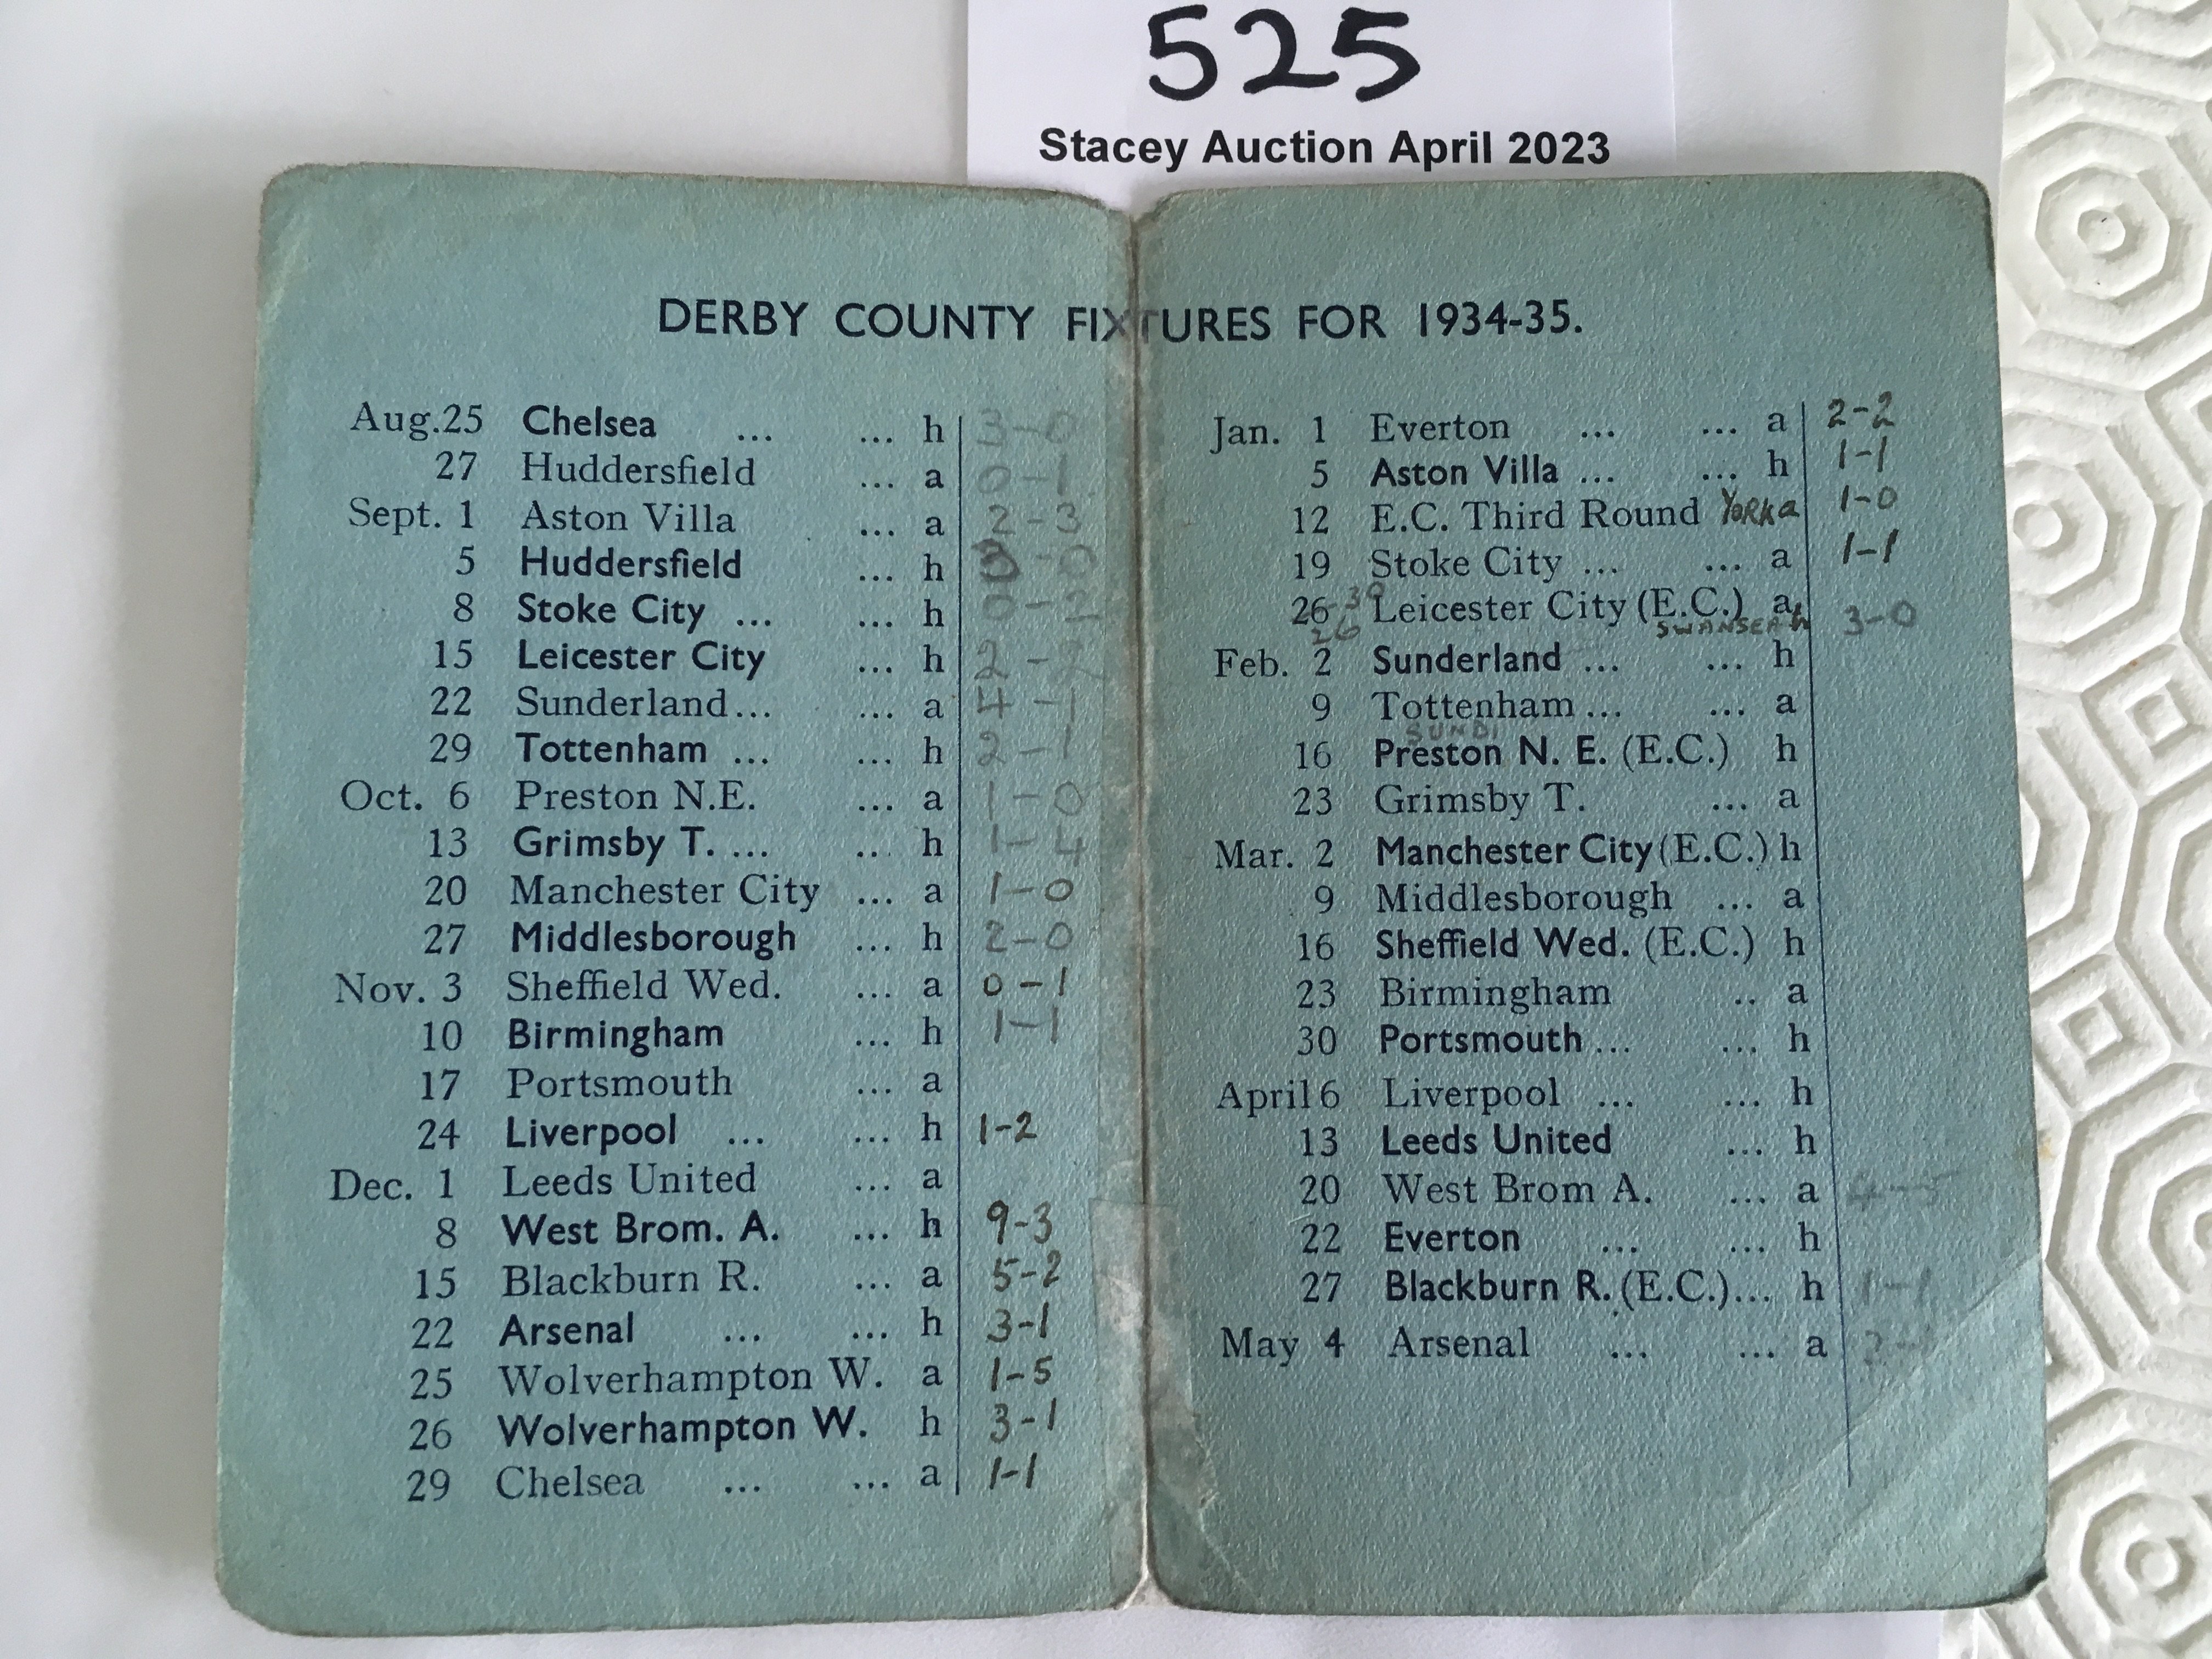 525
Stacey Auction April 2023
DERBY COUNTY FIXTURES FOR 1934-35.
Aug.25 Chelsea ... ... h 3-0
27 Huddersfield ... a 0-1
Sept. 1 Aston Villa ... a 2-3
5 Huddersfield ... h 3-0
8 Stoke City ... ... h 0-2
15 Leicester City ... h 2-2
22 Sunderland... ... a 4-1
29 Tottenham ... ... h 2-1
Oct. 6 Preston N.E. ... a 1-0
13 Grimsby T. ... ... h 1-4
20 Manchester City ... a 1-0
27 Middlesborough ... h 2-0
Nov. 3 Sheffield Wed. ... a 0-1
10 Birmingham ... h 1-1
17 Portsmouth ... a
24 Liverpool ... ... h 1-2
Dec. 1 Leeds United ... a
8 West Brom. A. ... h 9-3
15 Blackburn R. ... a 5-2
22 Arsenal ... ... h 3-1
25 Wolverhampton W. a 1-5
26 Wolverhampton W. h 3-1
29 Chelsea ... ... a 1-1
Jan. 1 Everton ... ... a 2-2
5 Aston Villa ... ... h 1-1
12 E.C. Third Round YORK a 1-0
19 Stoke City ... ... a 1-1
26 30 Leicester City (E.C.) a 3-0
26 SWANSEA h
Feb. 2 Sunderland ... ... h
9 Tottenham ... ... a
16 Preston N. E. (E.C.) h
23 Grimsby T. ... a
Mar. 2 Manchester City (E.C.) h
9 Middlesborough ... a
16 Sheffield Wed. (E.C.) h
23 Birmingham .. a
30 Portsmouth ... ... h
April 6 Liverpool ... ... h
13 Leeds United ... h
20 West Brom A. ... a
22 Everton ... ... h
27 Blackburn R. (E.C.)... h 1-1
May 4 Arsenal ... ... a